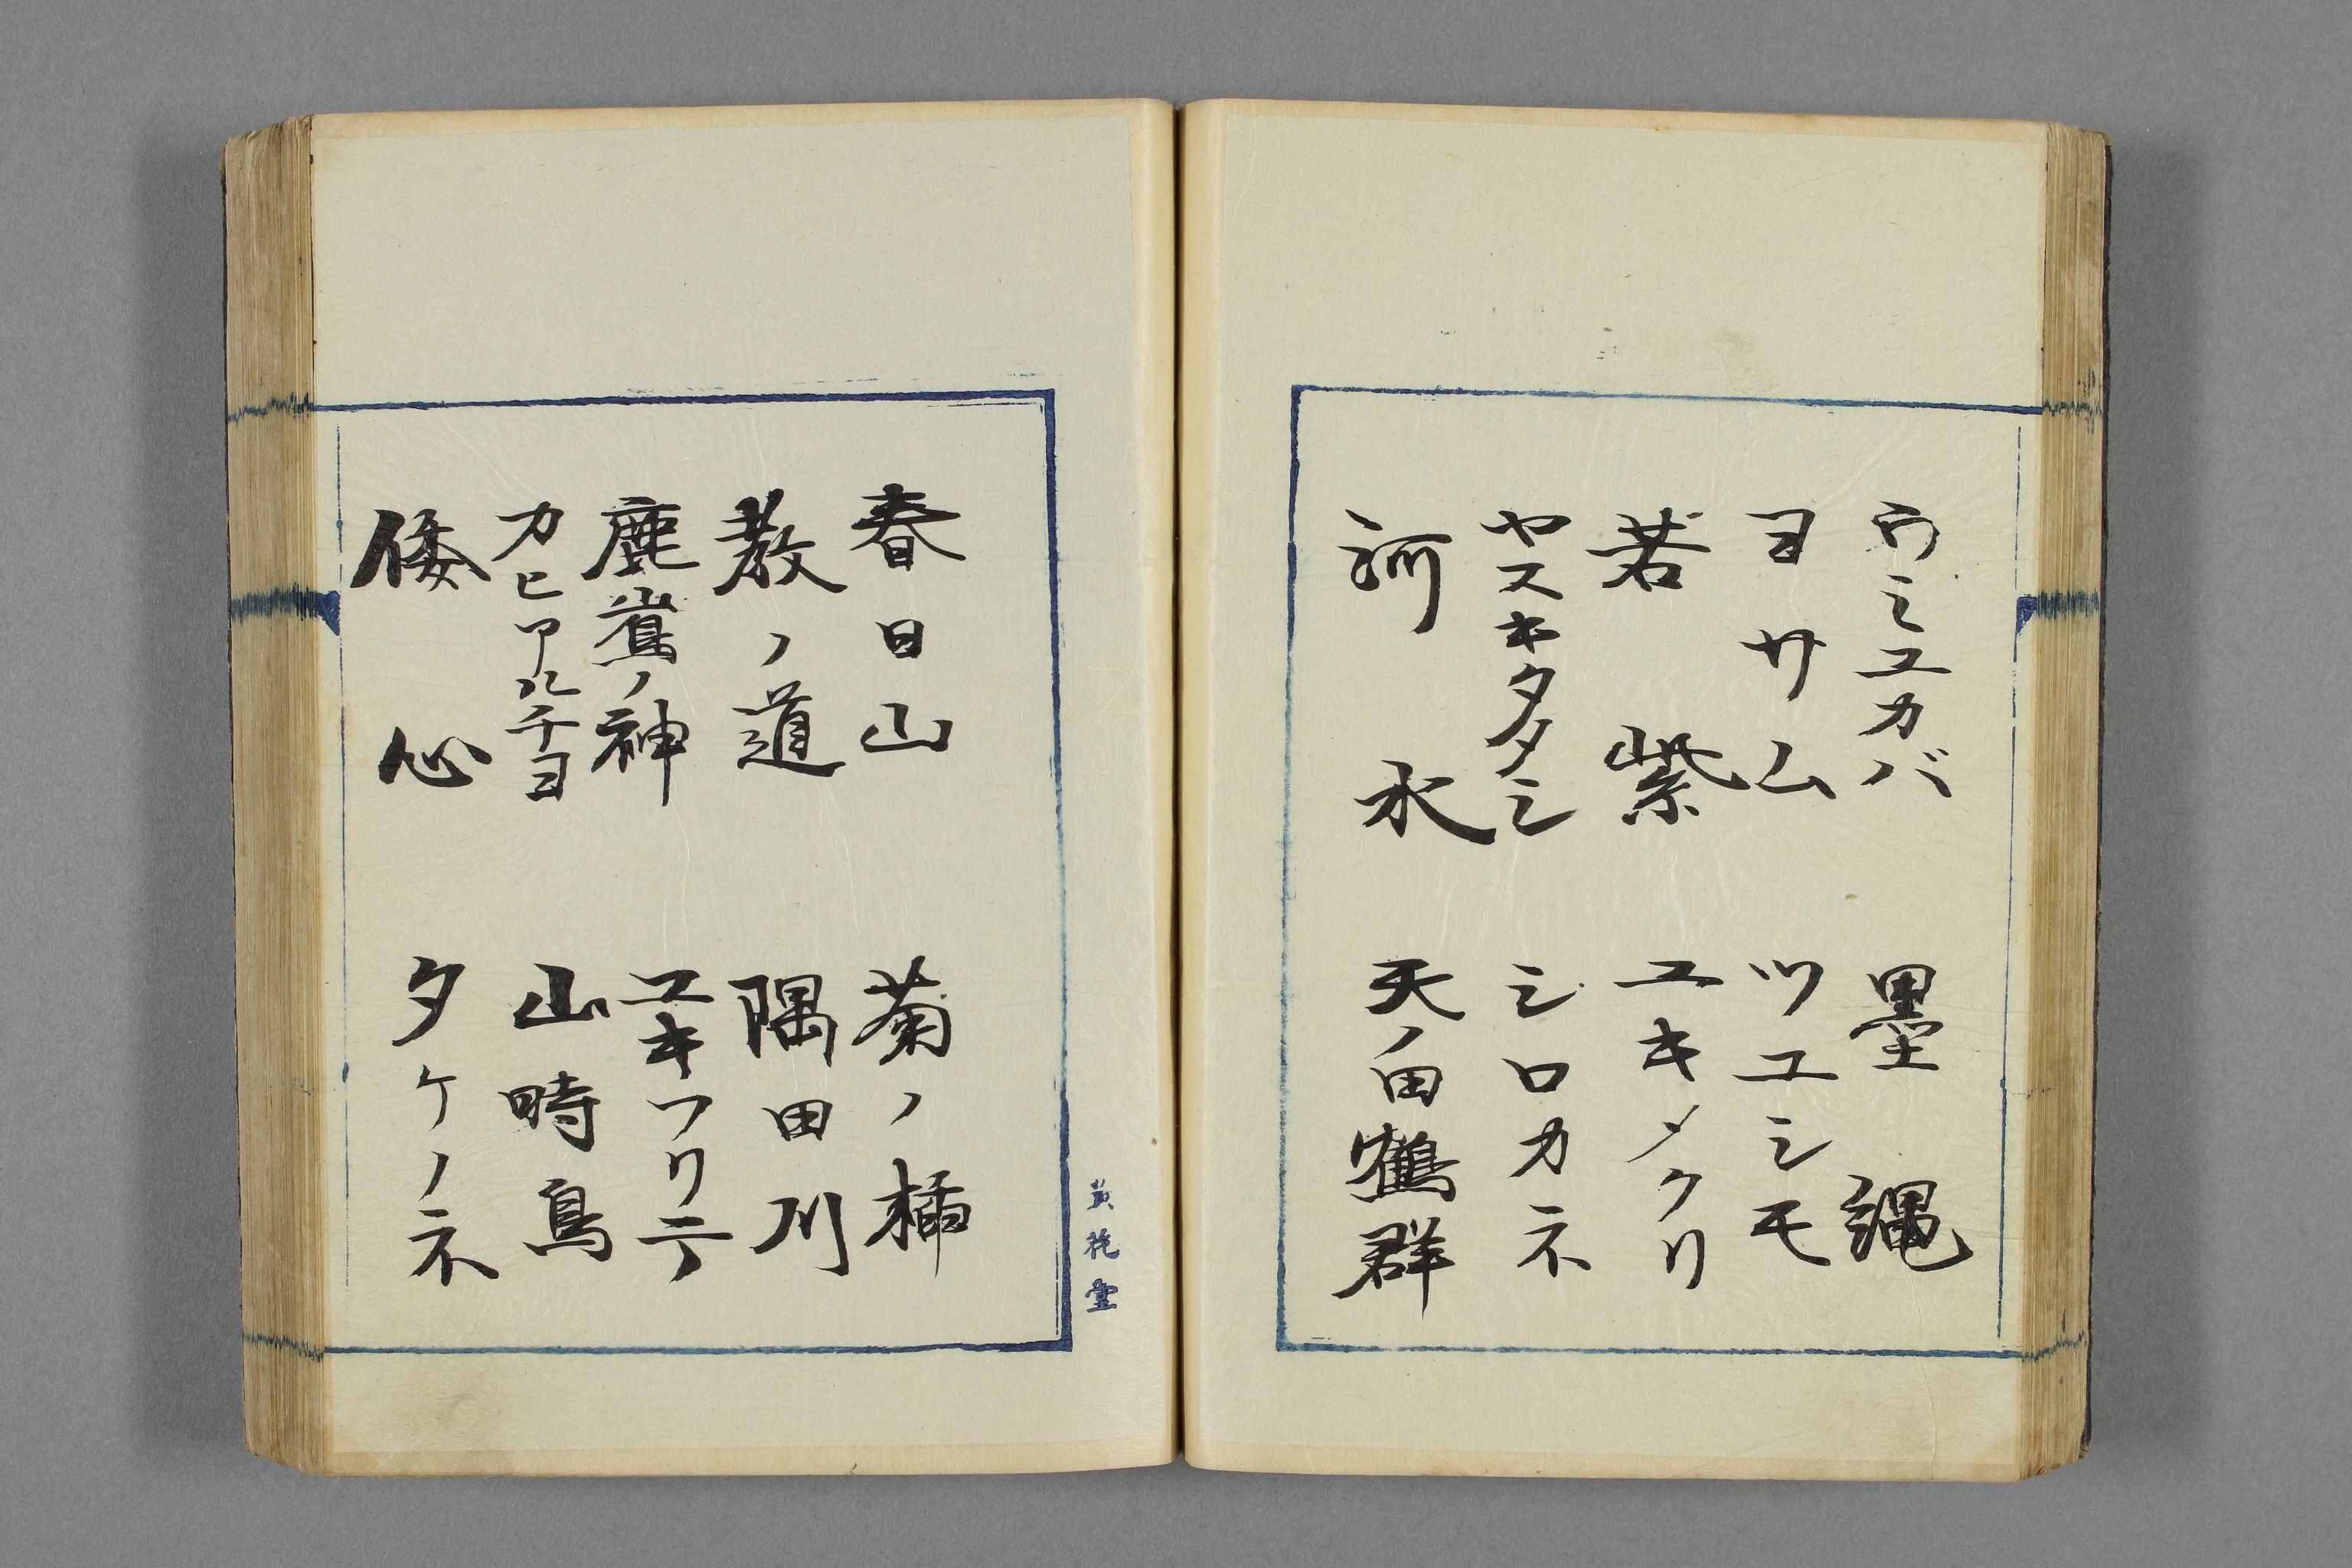 ウミユカバ 墨縄
ヨサム ツユシモ
若紫 ユキメクリ
ヤスキタタミ シロカネ
河水 天ノ田鶴群
春日山 菊ノ插
教ノ道 隅田川
鹿嶌ノ神 ユキフリテ
カヒアル千ヨ 山時鳥
倭心 タケノネ